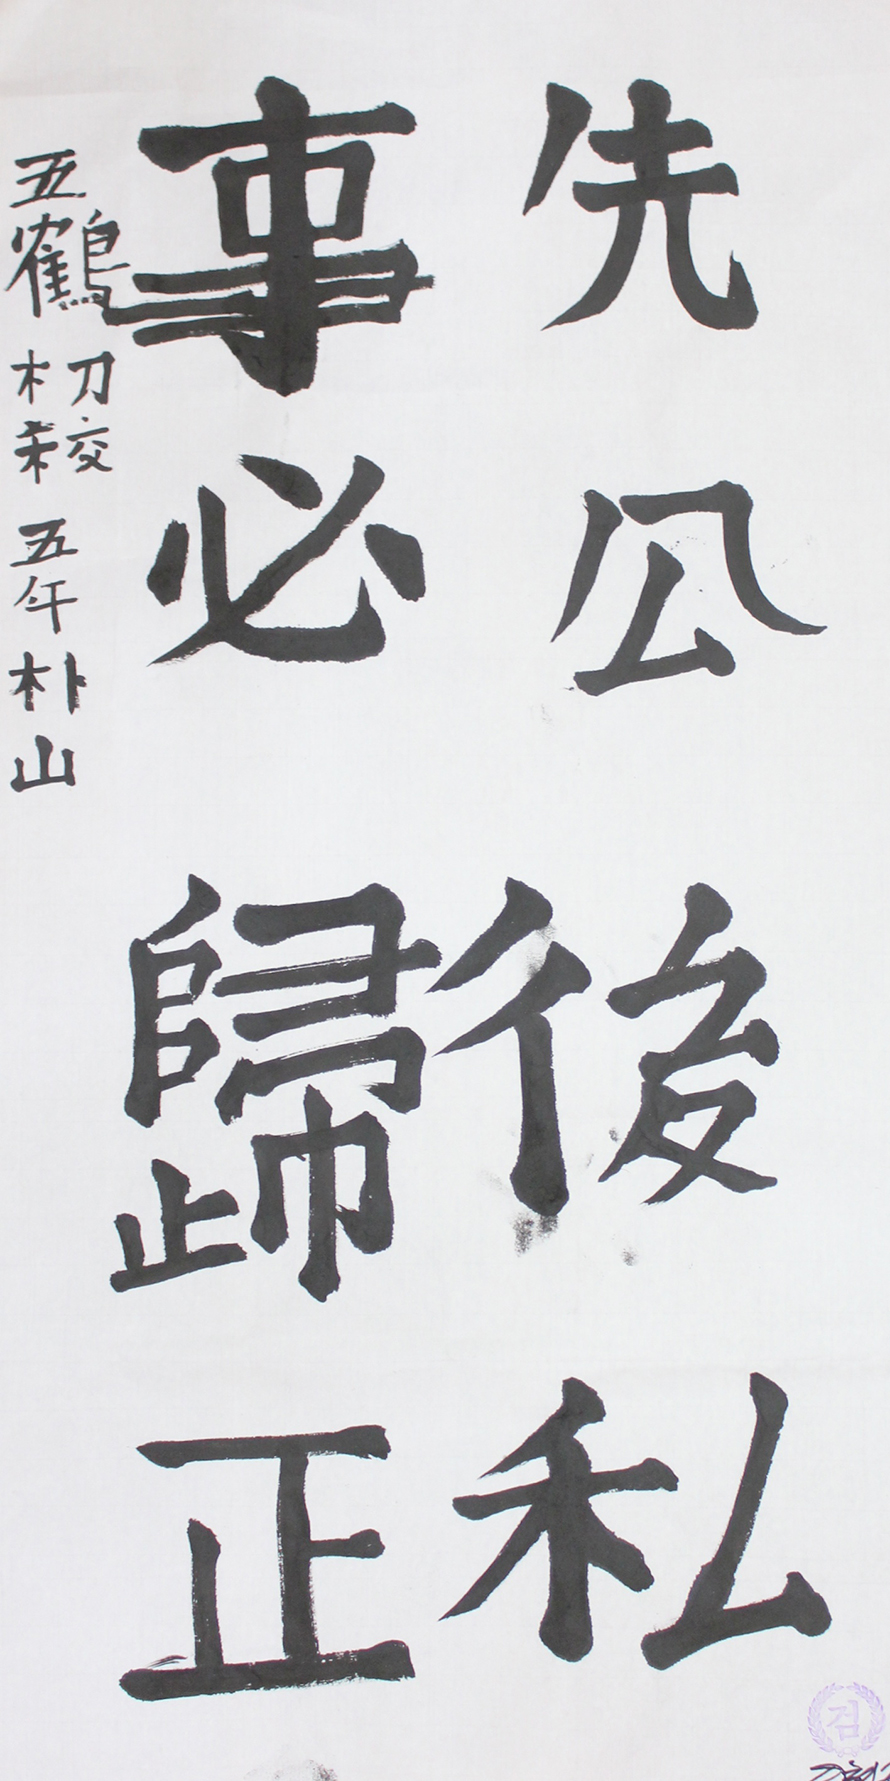 先公後私
事必歸正
五鶴 初校 五年 朴 山
검